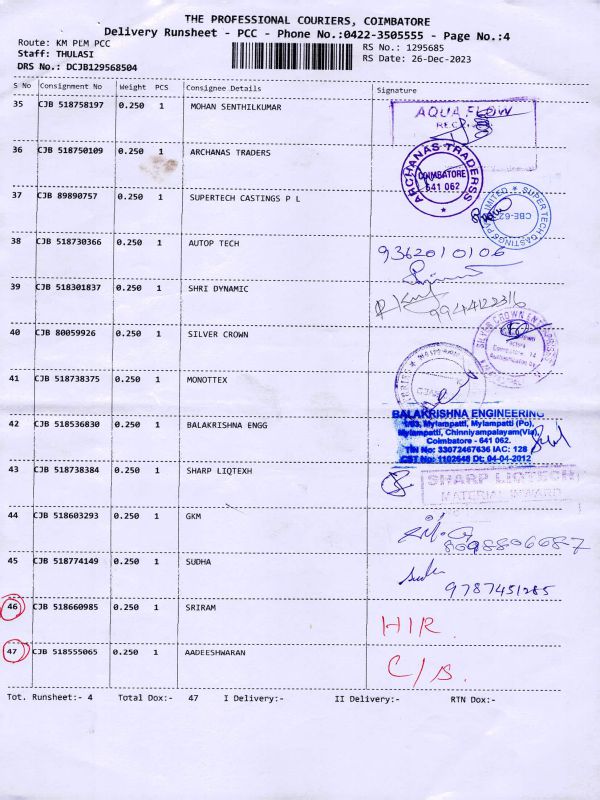 THE PROFESSIONAL COURIERS, COIMBATORE
Delivery Runsheet - PCC - Phone No.:0422-3505555 - Page No.:4
Route: KM PEM PCC
RS No.: 1295685
Staff: THULASI
RS Date: 26-Dec-2023
DRS No.: DCJB129568504
S No Consignment No Weight PCS Consignee Details Signature
35 CJB 518758197 0.250 1 MOHAN SENTHILKUMAR
AQUA FLOW
36 CJB 518750109 0.250 1 ARCHANAS TRADERS
ARCHANAS TRADERSS
COIMBATORE
641 062
37 CJB 89890757 0.250 1 SUPERTECH CASTINGS P L
SUPER TECH CASTINGS PVT LIMITED
CBE-62
38 CJB 518730366 0.250 1 AUTOP TECH
9362010106
39 CJB 518301837 0.250 1 SHRI DYNAMIC
9944122316
40 CJB 80059926 0.250 1 SILVER CROWN
SILVER CROWN
41 CJB 518738375 0.250 1 MONOTTEX
42 CJB 518536830 0.250 1 BALAKRISHNA ENGG
BALAKRISHNA ENGINEERING
1/83, Mylampatti, Mylampatti (Po),
Mylampatti, Chinniyampalayam(Via),
Coimbatore - 641 062.
TIN No: 33072467636 IAC: 128
CST No: 1102646 Dt: 04-04-2012
43 CJB 518738384 0.250 1 SHARP LIQTEXH
SHARP LIQTECH
MATERIAL INWARD
44 CJB 518603293 0.250 1 GKM
8098806687
45 CJB 518774149 0.250 1 SUDHA
9787451285
46 CJB 518660985 0.250 1 SRIRAM
HIR.
47 CJB 518555065 0.250 1 AADEESHWARAN
C/S.
Tot. Runsheet:- 4 Total Dox:- 47 I Delivery:- II Delivery:- RTN Dox:-